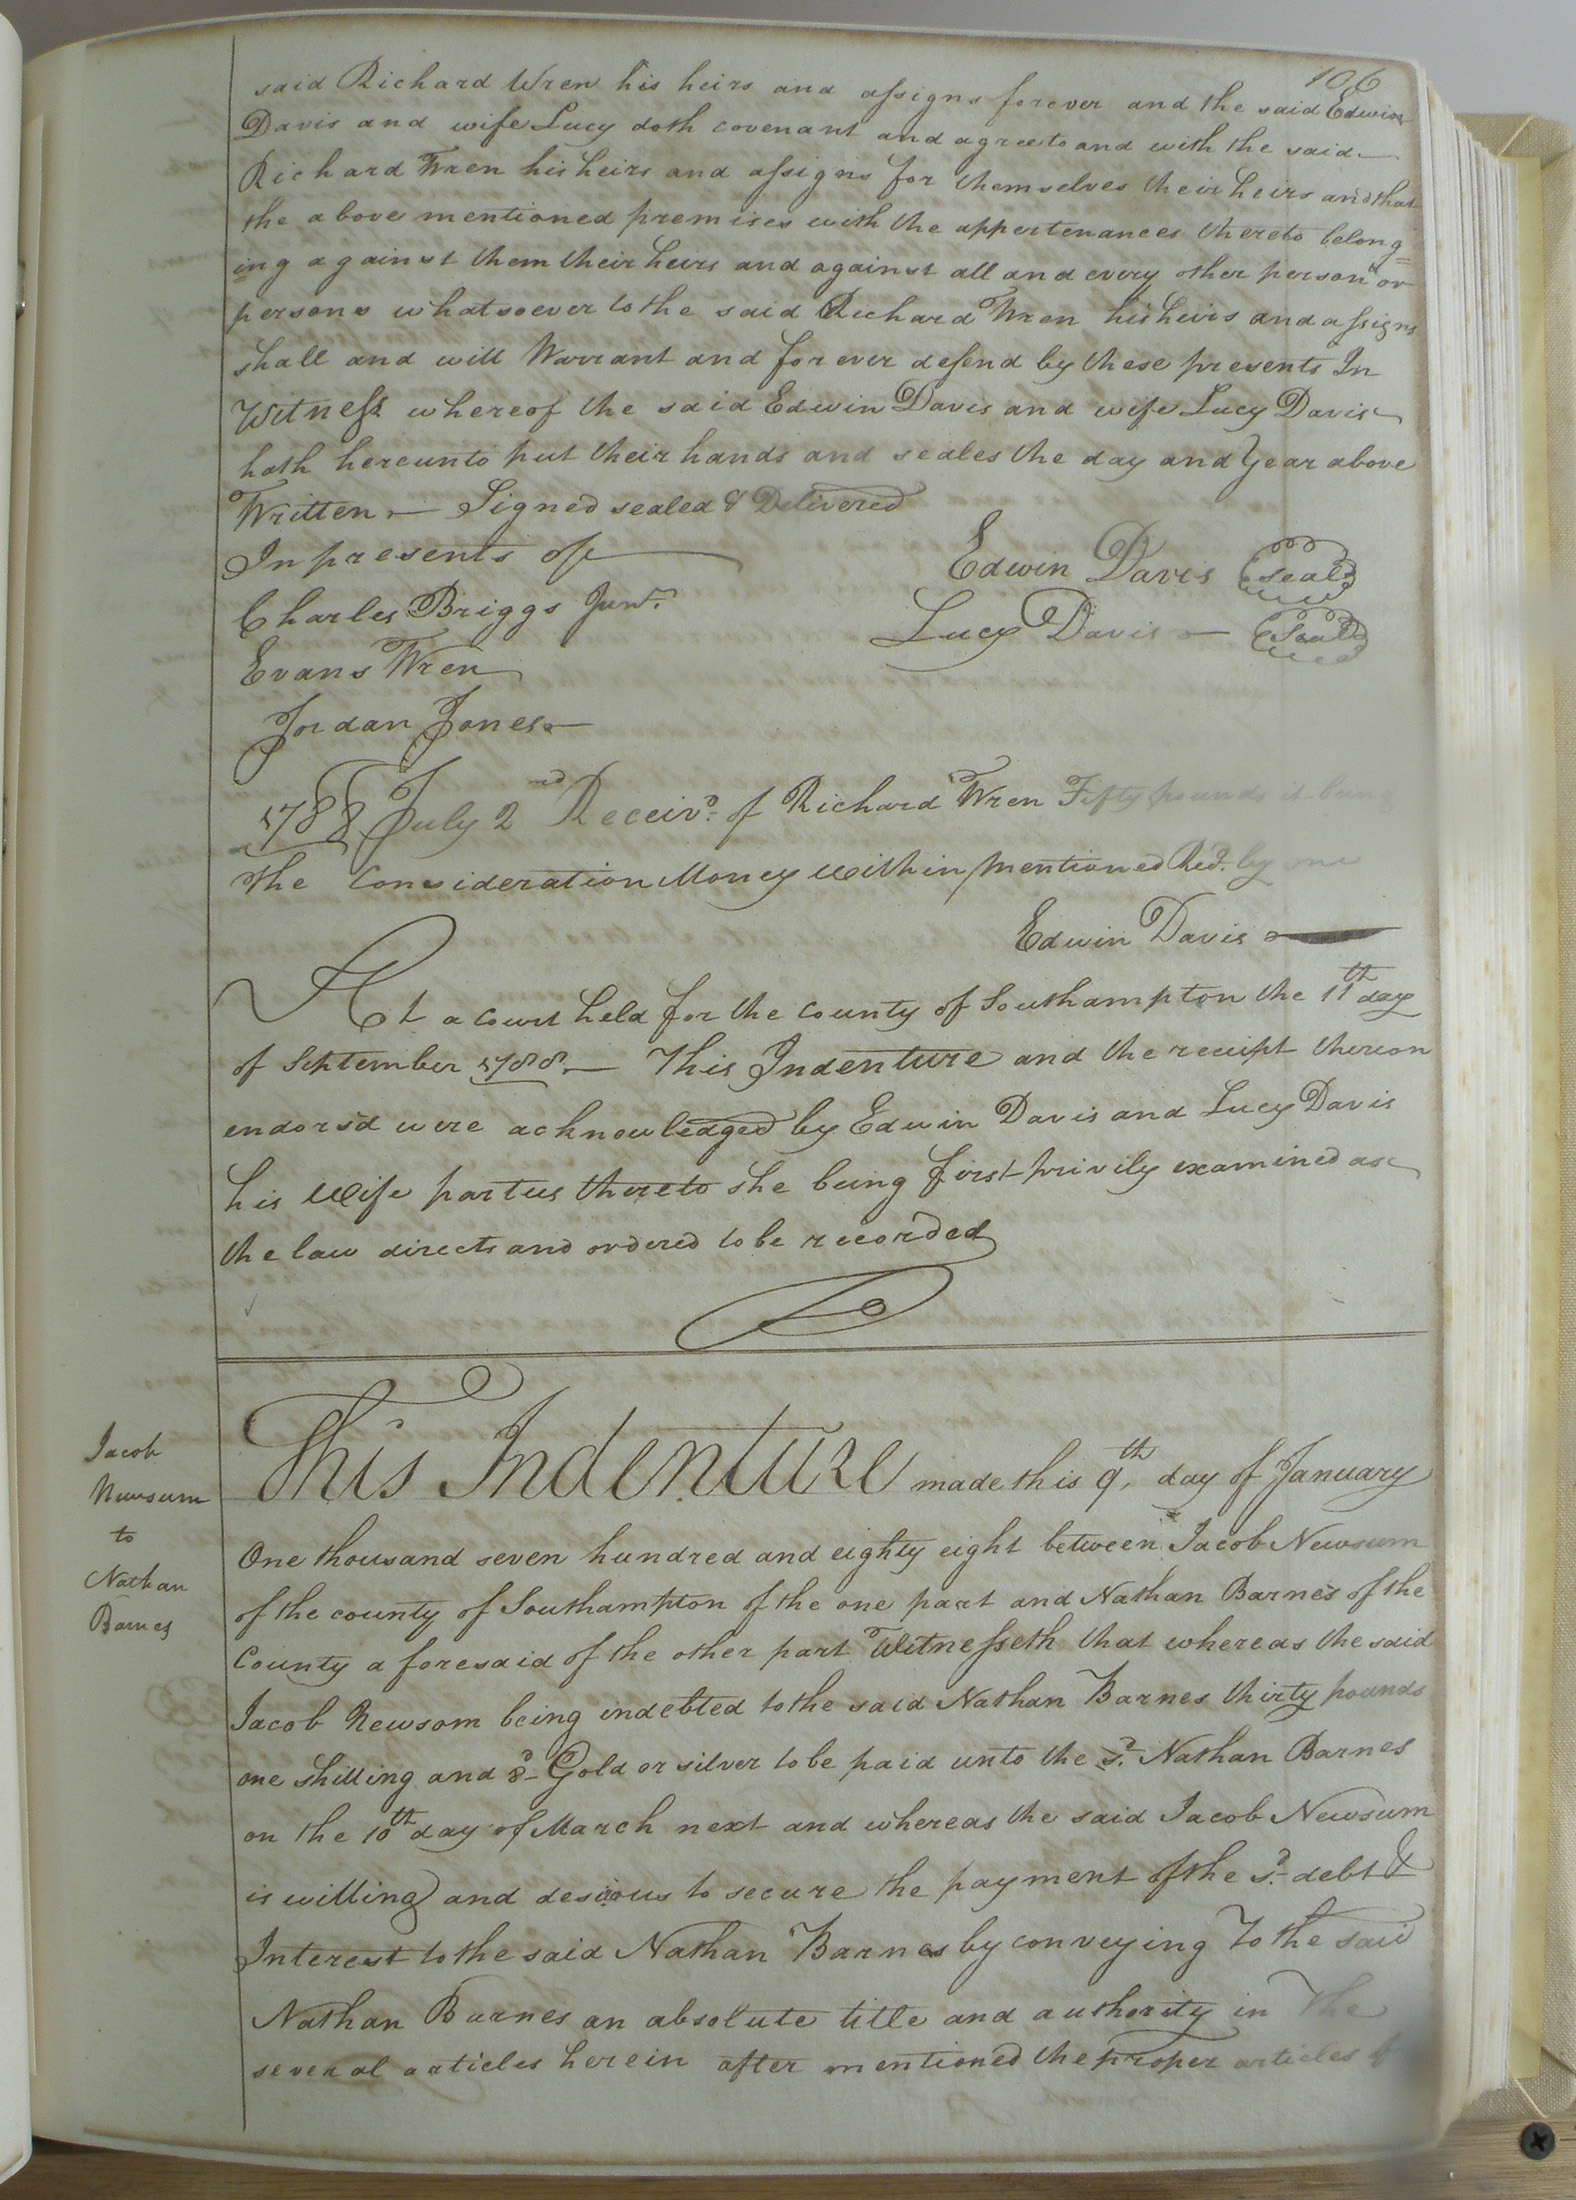 106
said Richard Wren his heirs and assigns forever and the said Edwin
Davis and wife Lucy doth covenant and agree to and with the said
Richard Wren his heirs and assigns for themselves their heirs and that
the above mentioned premises with the appertenances thereto belong=
ing against them their heirs and against all and every other person or
persons whatsoever to the said Richard Wren his heirs and assigns
shall and will Warrant and forever defend by these presents In
Witness whereof the said Edwin Davis and wife Lucy Davis
hath hereunto put their hands and seales the day and Year above
Written — Signed sealed & Delivered
In presents of
Edwin Davis seal
Charles Briggs Junr.
Lucy Davis — Seal
Evans Wren
Jordan Jones —
1788 July 2nd Receivd. of Richard Wren Fifty pounds it being
the Consideration Money within mentioned Red. by me
Edwin Davis
At a court held for the county of Southampton the 11th day
of September 1788. — This Indenture and the receipt thereon
endorsd were acknowledged by Edwin Davis and Lucy Davis
his wife parties thereto she being first privily examined as
the law directs and ordered to be recorded
Jacob
Newsum
to
Nathan
Barnes
This Indenture made this 9th. day of January
One thousand seven hundred and eighty eight between Jacob Newsum
of the county of Southampton of the one part and Nathan Barnes of the
County aforesaid of the other part Witnesseth that whereas the said
Jacob Newsom being indebted to the said Nathan Barnes thirty pounds
one shilling and 8d Gold or silver to be paid unto the sd. Nathan Barnes
on the 10th day of March next and whereas the said Jacob Newsum
is willing and desious to secure the payment of the sd. debt &
Interest to the said Nathan Barnes by conveying To the said
Nathan Barnes an absolute title and authority in The
several articles herein after mentioned the proper articles of